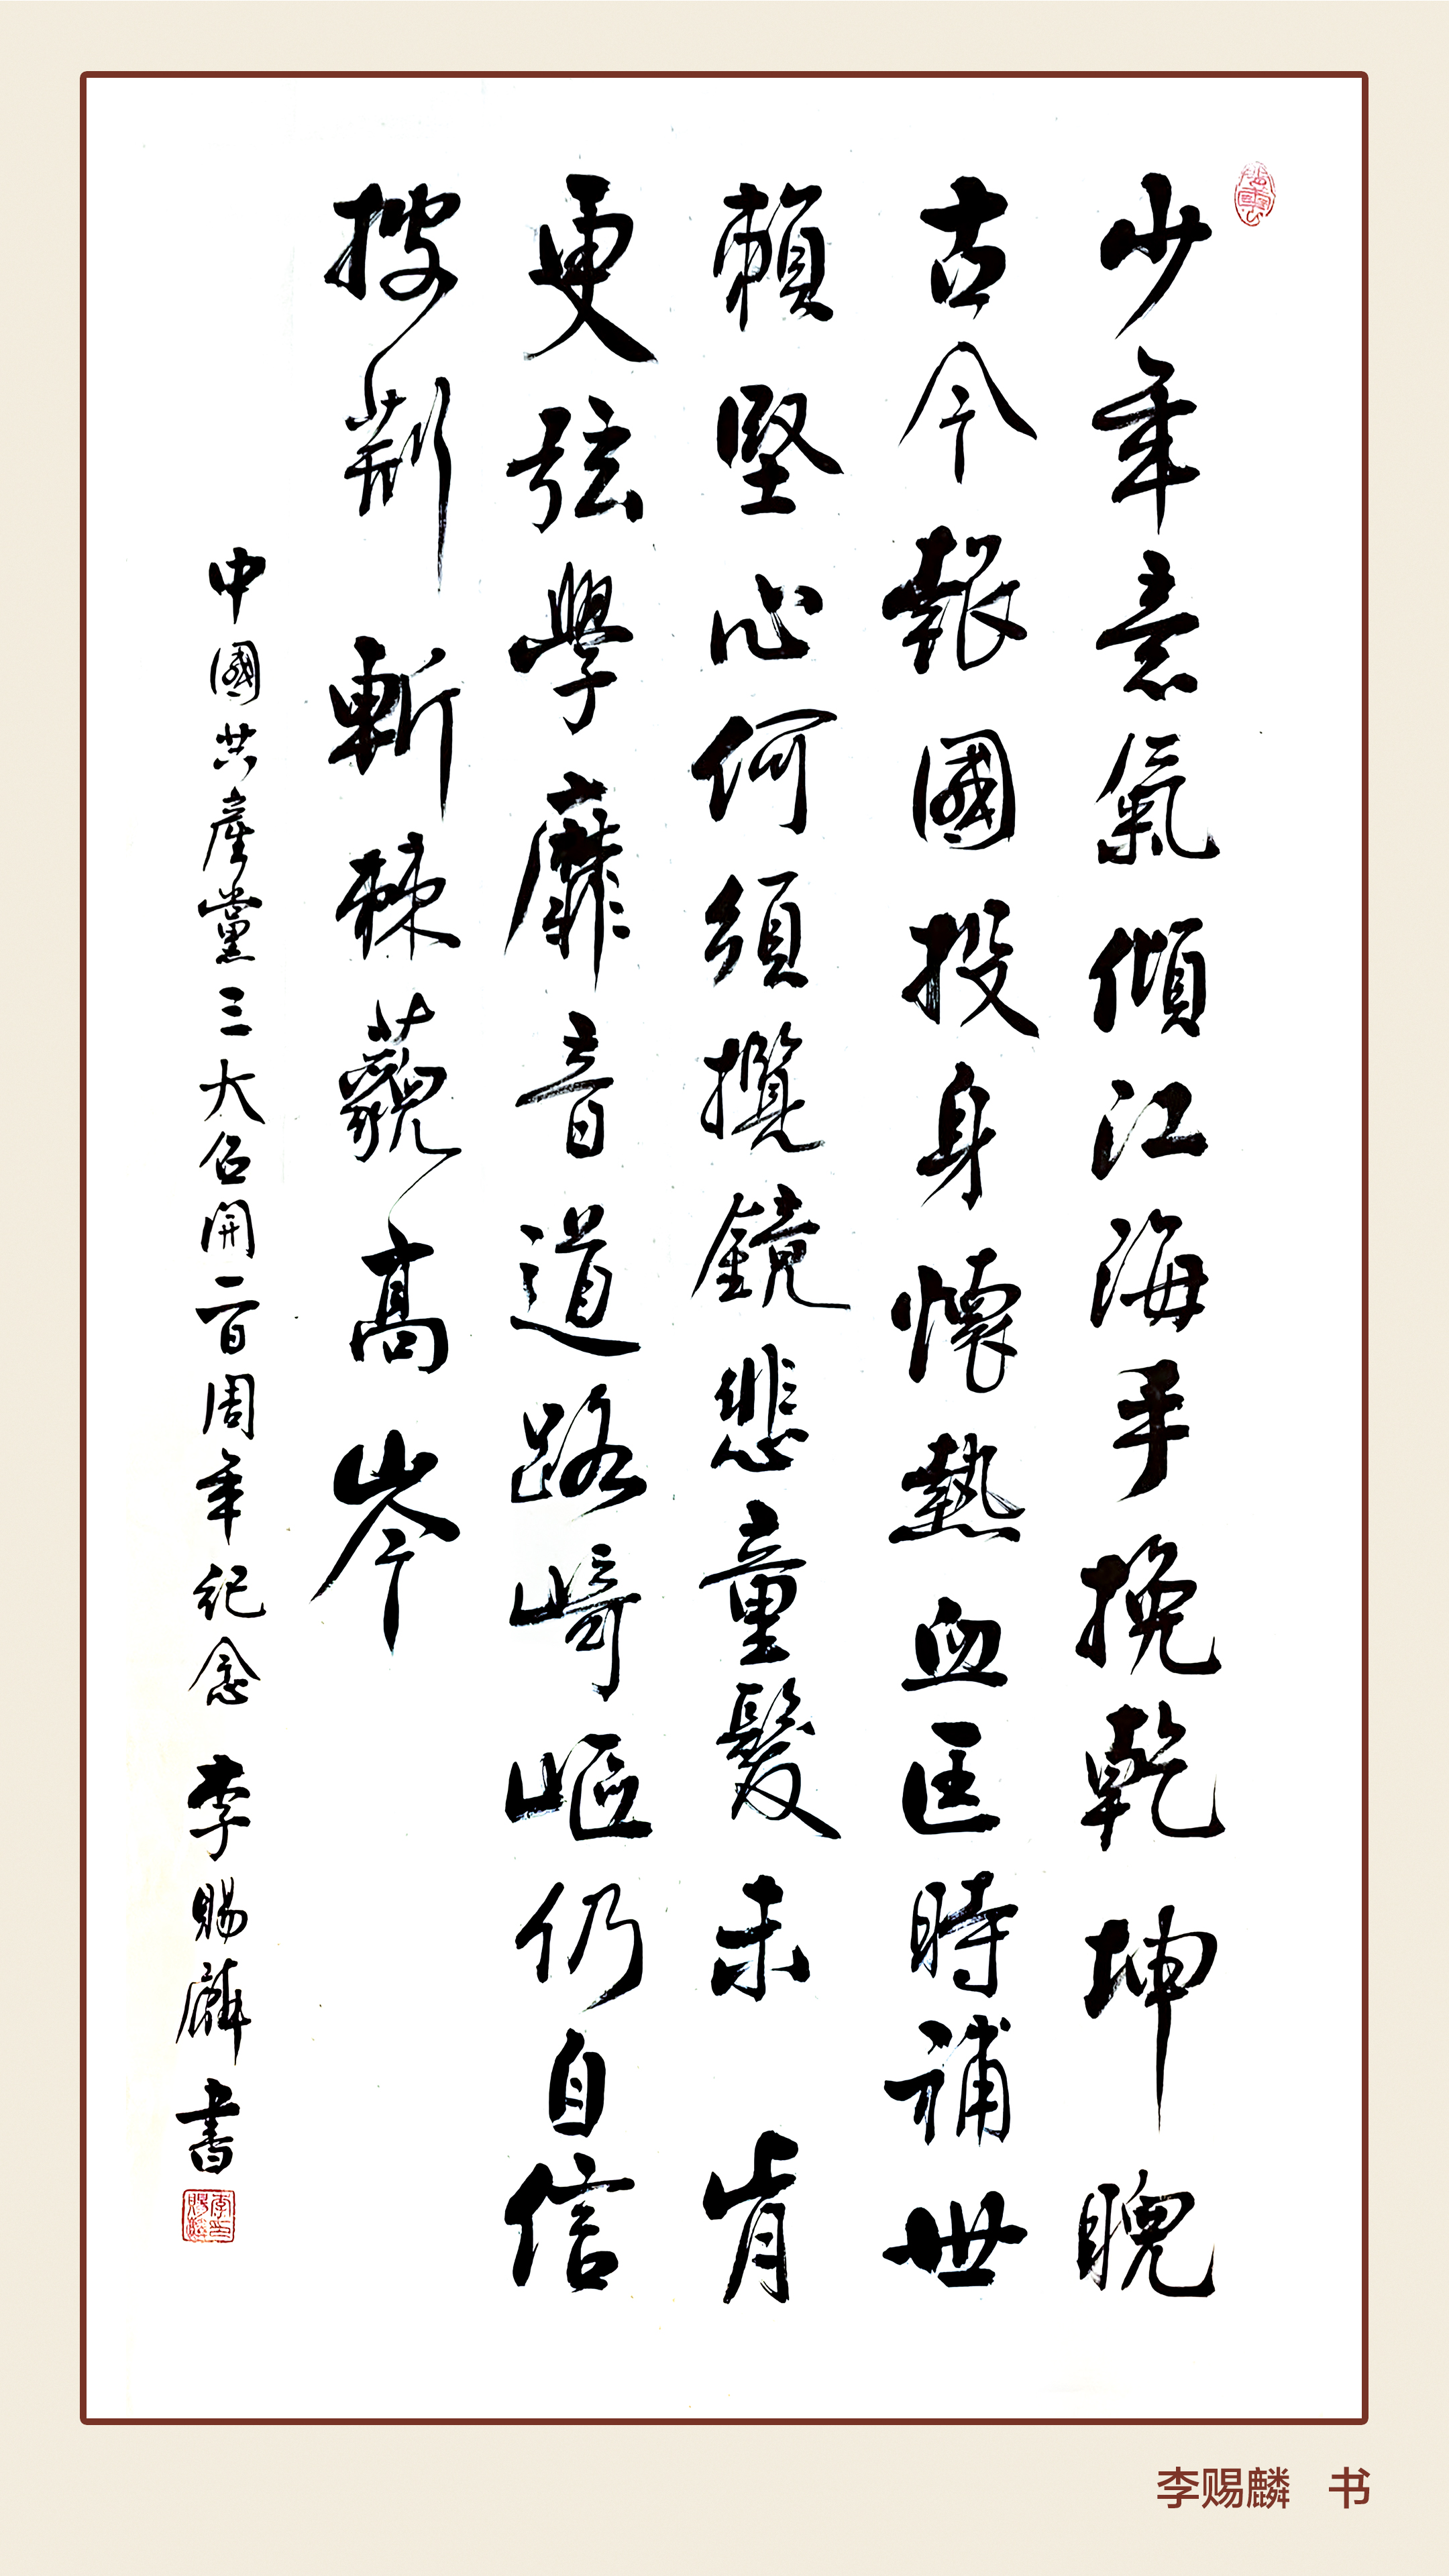 少年意氣傾江海手挽乾坤睨
古今報國投身懷熱血匡時補世
賴堅心何須攬鏡悲童髮未肯
更弦學靡音道路崎嶇仍自信
披荊斬棘藐高岑
中國共產黨三大召開一百周年紀念 李賜麟書
李赐麟 书